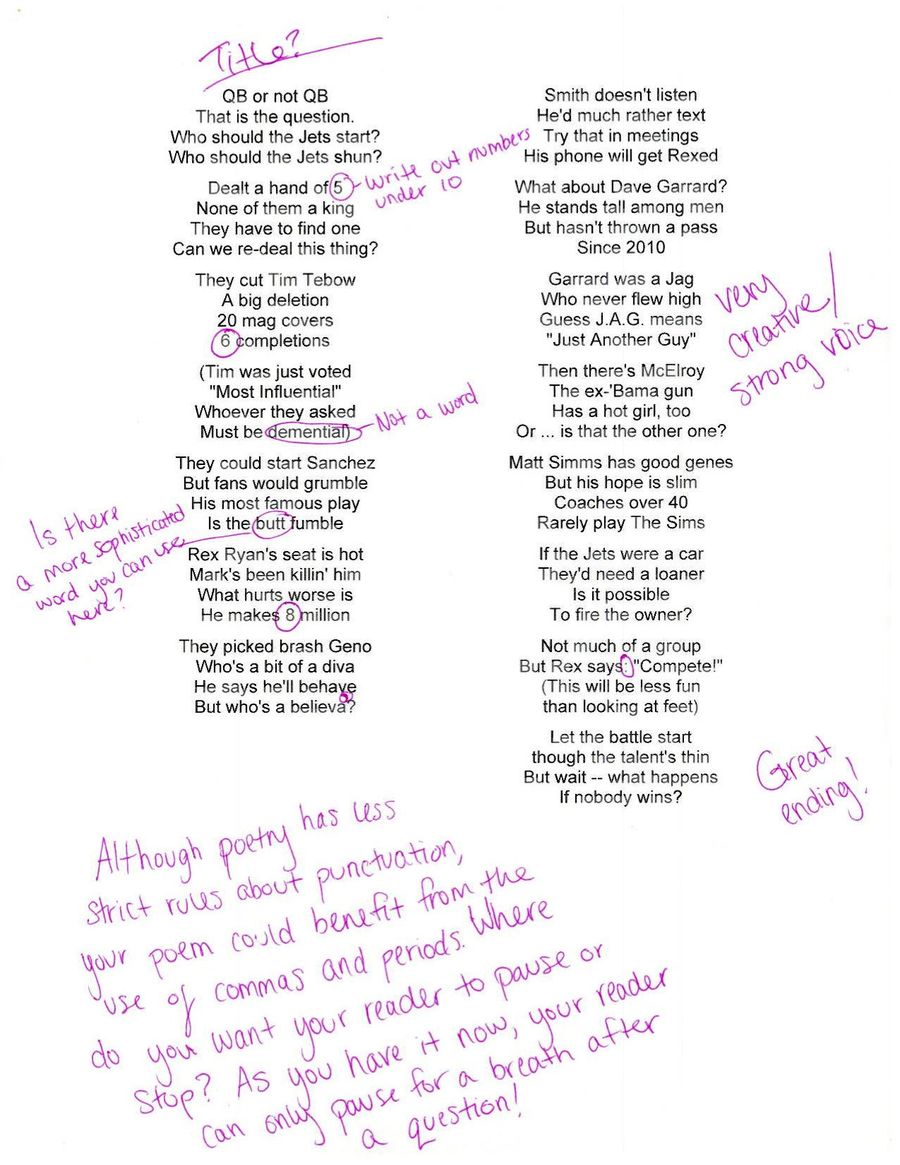 Title?
QB or not QB
That is the question.
Who should the Jets start?
Who should the Jets shun?
Dealt a hand of 5
Write out numbers
under 10
None of them a king
They have to find one
Can we re-deal this thing?
They cut Tim Tebow
A big deletion
20 mag covers
6 completions
(Tim was just voted
"Most Influential"
Whoever they asked
Must be demential)
Not a word
They could start Sanchez
But fans would grumble
His most famous play
Is the butt fumble
Is there
a more sophisticated
word you can use
here?
Rex Ryan's seat is hot
Mark's been killin' him
What hurts worse is
He makes 8 million
They picked brash Geno
Who's a bit of a diva
He says he'll behave
But who's a believa?
Smith doesn't listen
He'd much rather text
Try that in meetings
His phone will get Rexed
What about Dave Garrard?
He stands tall among men
But hasn't thrown a pass
Since 2010
Garrard was a Jag
Who never flew high
Guess J.A.G. means
"Just Another Guy"
very
creative/
strong voice
Then there's McElroy
The ex-'Bama gun
Has a hot girl, too
Or ... is that the other one?
Matt Simms has good genes
But his hope is slim
Coaches over 40
Rarely play The Sims
If the Jets were a car
They'd need a loaner
Is it possible
To fire the owner?
Not much of a group
But Rex says: "Compete!"
(This will be less fun
than looking at feet)
Let the battle start
though the talent's thin
But wait -- what happens
If nobody wins?
Great
ending!
Although poetry has less
strict rules about punctuation,
your poem could benefit from the
use of commas and periods. Where
do you want your reader to pause or
stop? As you have it now, your reader
can only pause for a breath after
a question!